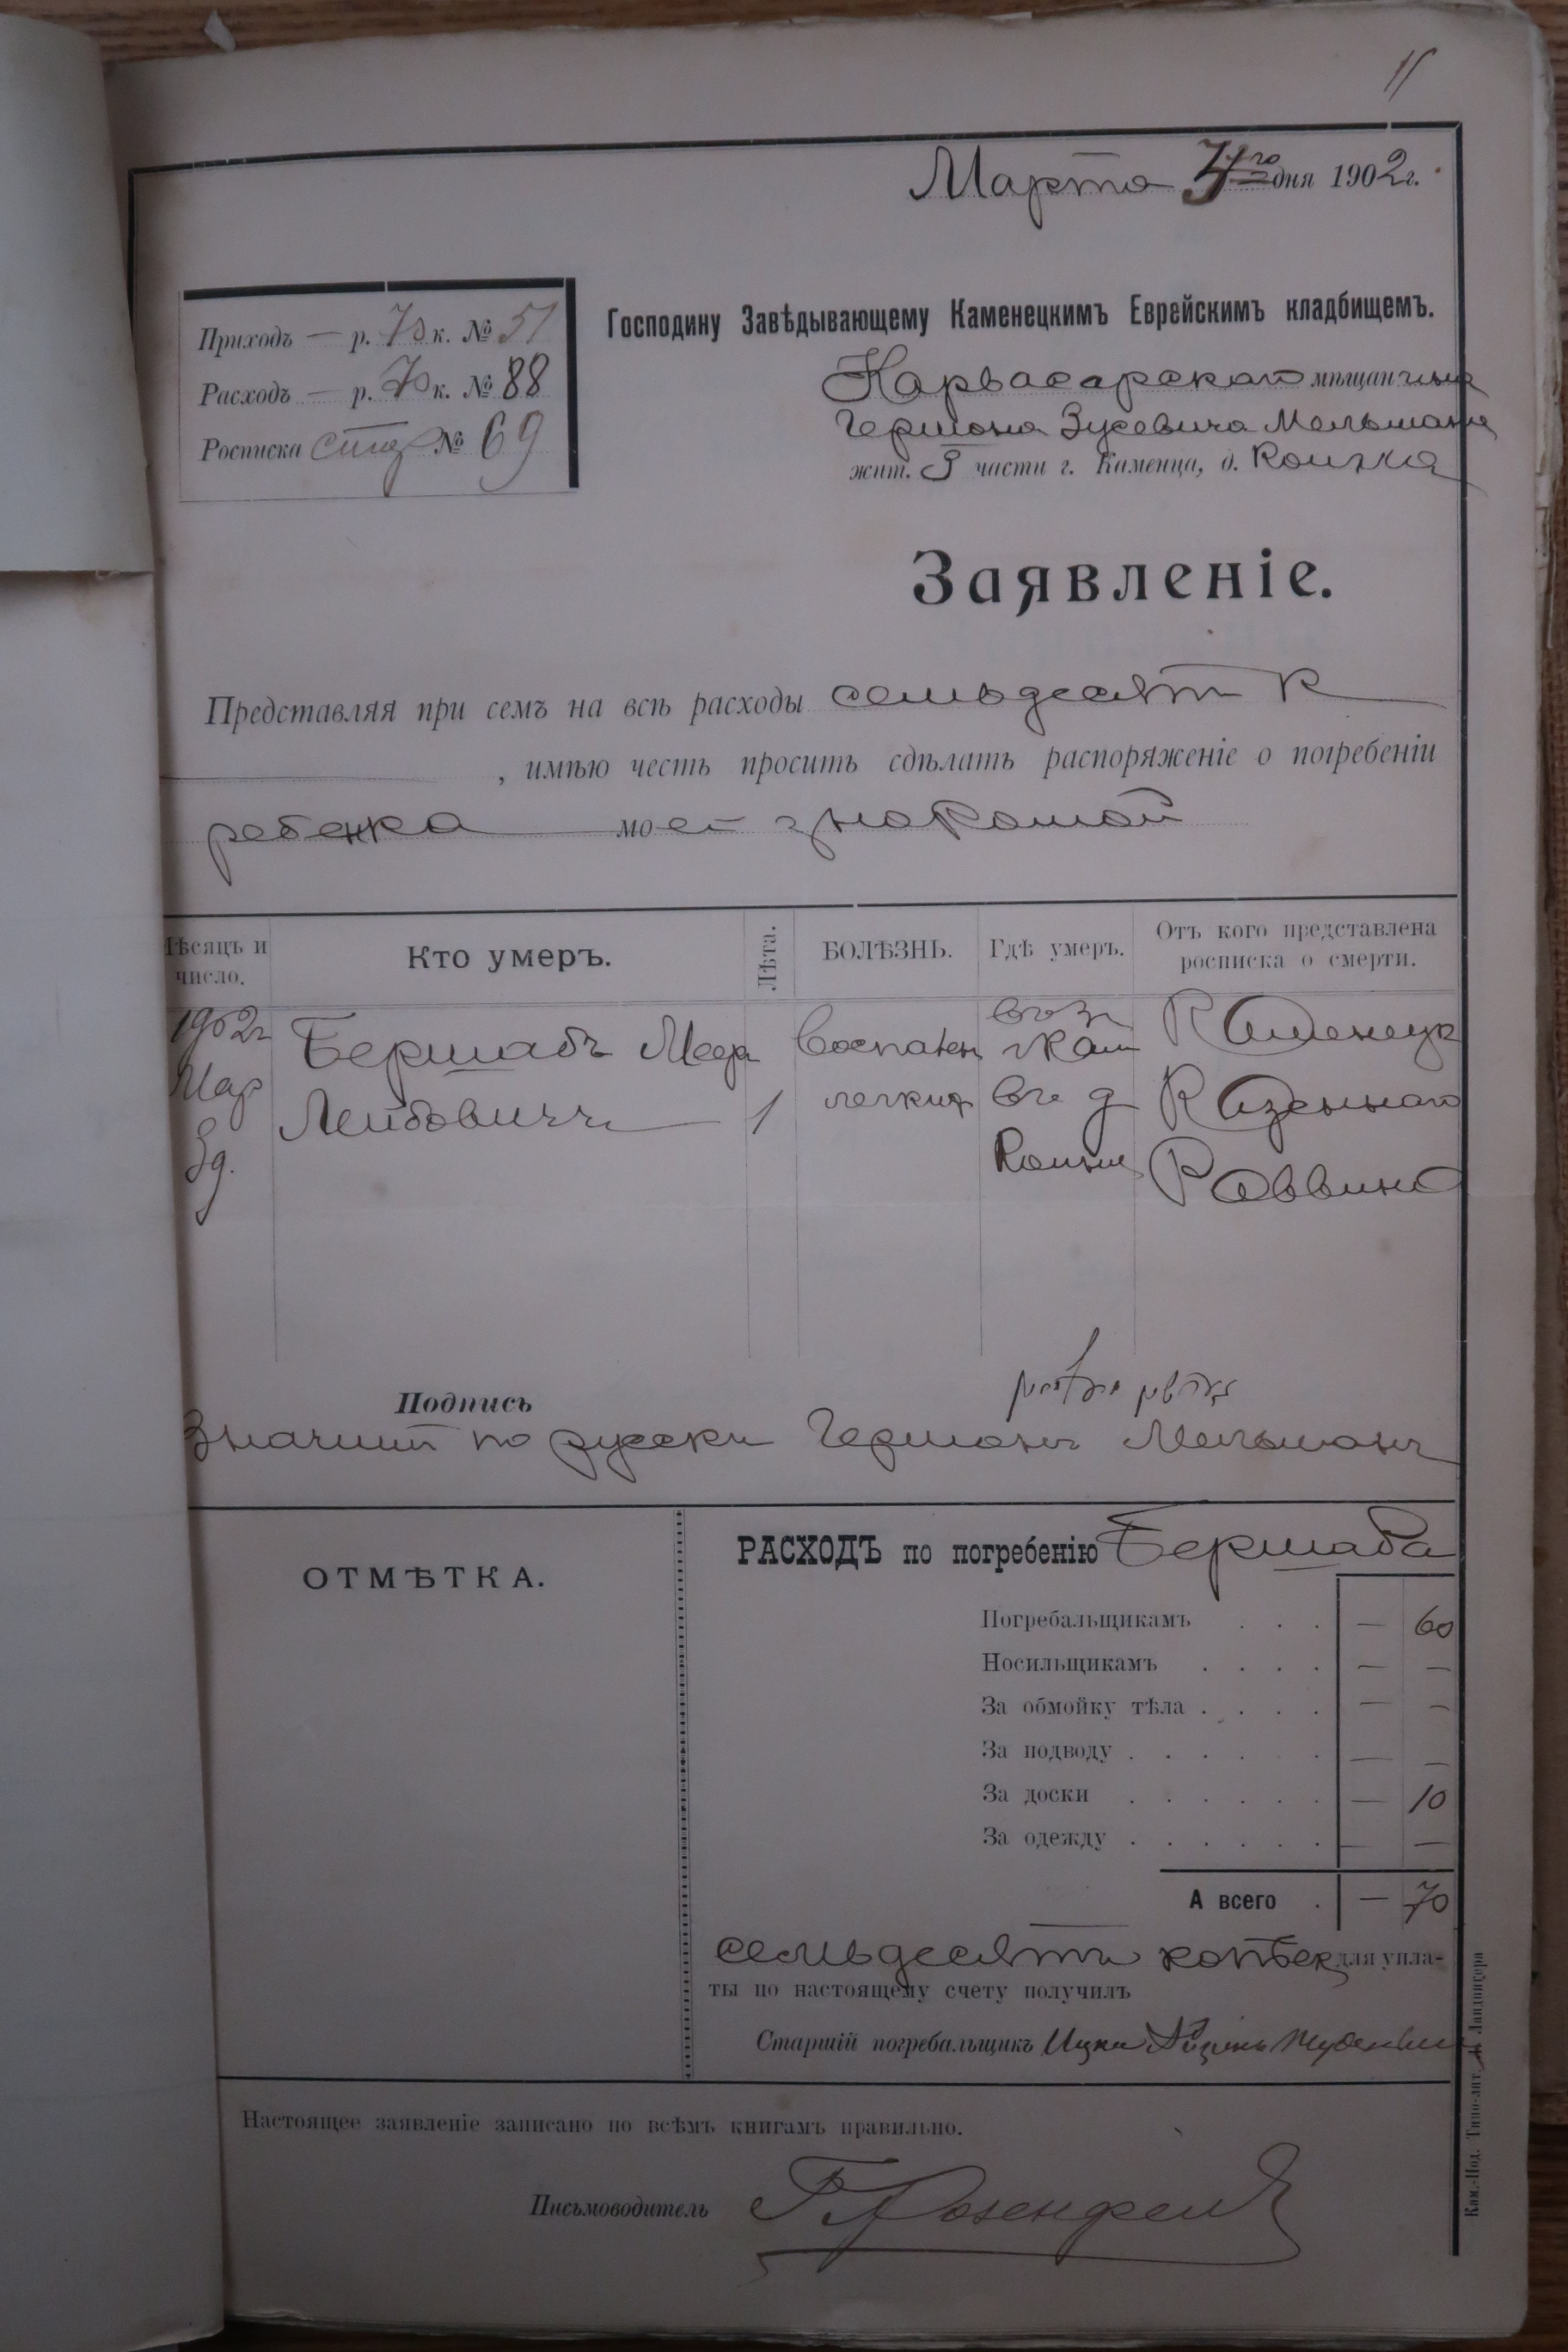 Марта 4го дня 1902 г.
Приходъ — р. 70 к. № 51
Расходъ — р. 70 к. № 88
Росписка № 69
Господину Завѣдывающему Каменецкимъ Еврейскимъ кладбищемъ.
Карвасарского мѣщанина
Гершона Зусевича Мельмана
жит. I части г. Каменца, д.
Заявленіе.
Представляя при семъ на всѣ расходы семьдесятъ к
, имѣю честь просить сдѣлать распоряженіе о погребеніи
ребенка моей знакомой
Мѣсяцъ и число. Кто умеръ. Лѣта. БОЛѢЗНЬ. Гдѣ умеръ. Отъ кого представлена росписка о смерти.
1902 г. Бершадъ Меер Воспален Каменецк
Мар Лейбовичъ 1 легких въ д Казеннаго
3 д. Раввина
Подпись
Значит по русски Гершонъ Мельманъ
ОТМѢТКА.
РАСХОДЪ по погребенію Бершада
Погребальщикамъ . . . — 60
Носильщикамъ . . . . — —
За обмойку тѣла . . . . — —
За подводу . . . . . . — —
За доски . . . . . . — 10
За одежду . . . . . . — —
А всего . — 70
семьдесятъ копѣек для упла-
ты по настоящему счету получилъ
Старшій погребальщикъ Ицки
Настоящее заявленіе записано по всѣмъ книгамъ правильно.
Письмоводитель Розенфельд
Кам.-Под. Типо-лит. Ландвигера